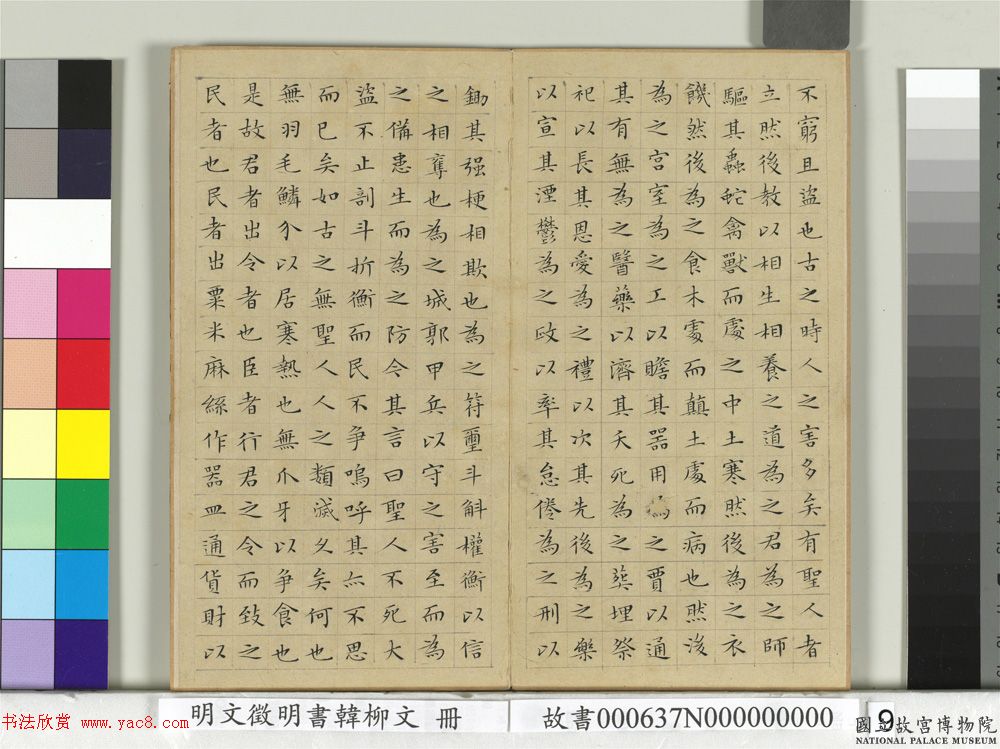 不窮且盜也古之時人之害多矣有聖人者
立然後教以相生相養之道為之君為之師
驅其蟲蛇禽獸而處之中土寒然後為之衣
饑然後為之食木處而顛土處而病也然後
為之宮室為之工以贍其器用為之賈以通
其有無為之醫藥以濟其夭死為之葬埋祭
祀以長其恩愛為之禮以次其先後為之樂
以宣其湮鬱為之政以率其怠倦為之刑以
鋤其强梗相欺也為之符璽斗斛權衡以信
之相奪也為之城郭甲兵以守之害至而為
之備患生而為之防今其言曰聖人不死大
盜不止剖斗折衡而民不爭嗚呼其亦不思
而已矣如古之無聖人人之類滅久矣何也
無羽毛鱗介以居寒熱也無爪牙以爭食也
是故君者出令者也臣者行君之令而致之
民者也民者出粟米麻絲作器皿通貨財以
书法欣赏 www.yac8.com
明文徵明書韓柳文 冊
故書000637N000000000
9
國立故宮博物院
NATIONAL PALACE MUSEUM